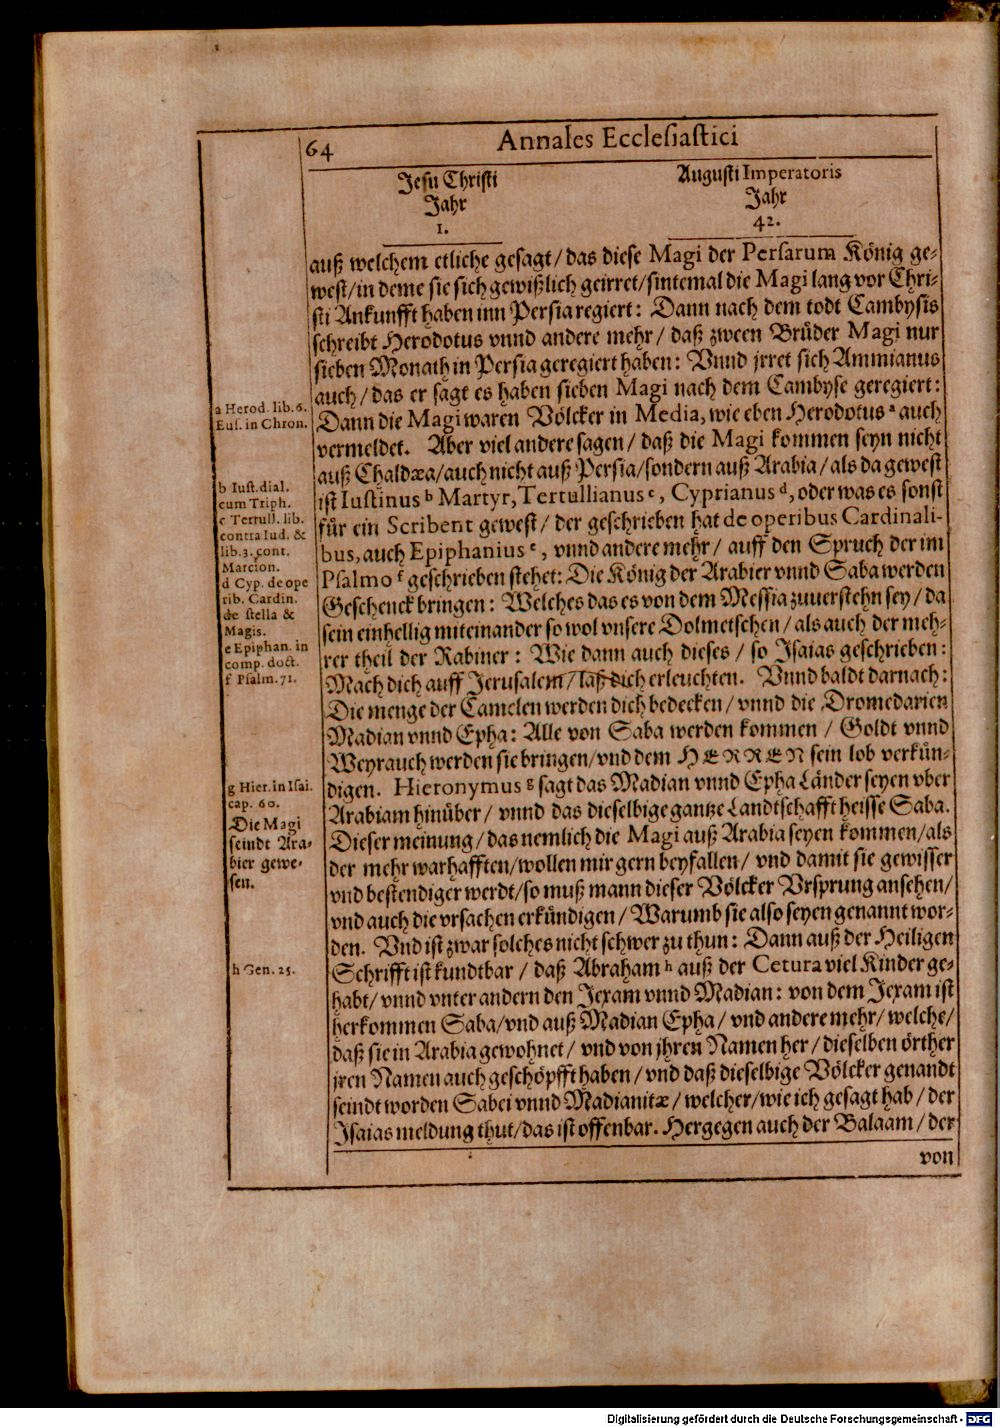 64
Annales Ecclesiastici
Jesu Christi
Jahr
1.
Augusti Imperatoris
Jahr
42.
auß welchem etliche gesagt/das diese Magi der Persarum König ge-
west/in deme sie sich gewißlich geirret/sintemal die Magi lang vor Chri-
sti Ankunfft haben inn Persia regiert: Dann nach dem todt Cambysis
schreibt Herodotus vnnd andere mehr/ daß zween Brüder Magi nur
sieben Monath in Persia geregiert haben: Vnnd jrret sich Ammianus
auch/das er sagt es haben sieben Magi nach dem Cambyse geregiert:
Dann die Magi waren Völcker in Media, wie eben Herodotus a auch
vermeldet. Aber viel andere sagen/ daß die Magi kommen seyn nicht
auß Chaldæa/auch nicht auß Persia/sondern auß Arabia/als da gewest
ist Iustinus b Martyr, Tertullianus c, Cyprianus d, oder was es sonst
für ein Scribent gewest/ der geschrieben hat de operibus Cardinali-
bus, auch Epiphanius e, vnnd andere mehr/ auff den Spruch der im
Psalmo f geschrieben stehet: Die König der Arabier vnnd Saba werden
Geschenck bringen: Welches das es von dem Messia zuuerstehn sey/da
sein einhellig miteinander so wol vnsere Dolmetschen/als auch der meh-
rer theil der Rabiner: Wie dann auch dieses/ so Isaias geschrieben:
Mach dich auff Jerusalem/laß dich erleuchten. Vnnd baldt darnach:
Die menge der Camelen werden dich bedecken/vnnd die Dromedarien
Madian vnnd Epha: Alle von Saba werden kommen/ Goldt vnnd
Weyrauch werden sie bringen/vnd dem HERREN sein lob verkün-
digen. Hieronymus g sagt das Madian vnnd Epha Länder seyen vber
Arabiam hinüber/ vnnd das dieselbige gantze Landtschafft heisse Saba.
Dieser meinung/das nemlich die Magi auß Arabia seyen kommen/als
der mehr warhafften/wollen mir gern beyfallen/ vnd damit sie gewisser
vnd bestendiger werdt/so muß mann dieser Völcker Vrsprung ansehen/
vnd auch die vrsachen erkündigen/Warumb sie also seyen genannt wor-
den. Vnd ist zwar solches nicht schwer zu thun: Dann auß der Heiligen
Schrifft ist kundtbar/ daß Abraham h auß der Cetura viel Kinder ge-
habt/vnnd vnter andern den Jexam vnnd Madian: von dem Jexam ist
herkommen Saba/vnd auß Madian Epha/ vnd andere mehr/welche/
daß sie in Arabia gewohnet/ vnd von jhren Namen her/dieselben örther
jren Namen auch geschöpfft haben/vnd daß dieselbige Völcker genandt
seindt worden Sabei vnnd Madianitæ/welcher/wie ich gesagt hab/der
Isaias meldung thut/das ist offenbar. Hergegen auch der Balaam/der
von
a Herod. lib. 6.
Eus. in Chron.
b Iust. dial.
cum Triph.
c Tertull. lib.
contra Iud. &
lib. 3. cont.
Marcion.
d Cyp. de ope
rib. Cardin.
de stella &
Magis.
e Epiphan. in
comp. doct.
f Psalm. 71.
g Hier. in Isai.
cap. 60.
Die Magi
seindt Ara-
bier gewe-
sen.
h Gen. 25.
Digitalisierung gefördert durch die Deutsche Forschungsgemeinschaft - DFG